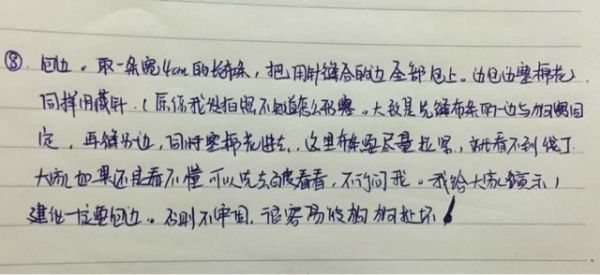 ⑧ 包边。取一条宽4cm的长布条，把用针缝合的边全部包上。边包边塞棉花，
同样用藏针。（原谅我光拍照不知道怎么形容。大致是先缝布条的一边与狗窝固
定，再缝另边，同时塞棉花进去，这里布条要尽量拉紧，就看不到线了
大家如果还是看不懂可以先去百度看看，不行问我。我给大家演示）
建议一定要包边。否则不牢固，很容易被狗狗扯坏